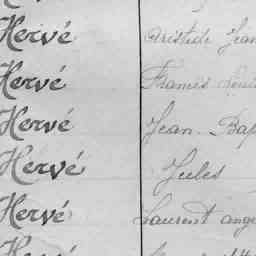 Hervé Aristide Jean
Hervé Francis Louis
Hervé Jean-Bap
Hervé Jules
Hervé Laurent ange
Hervé